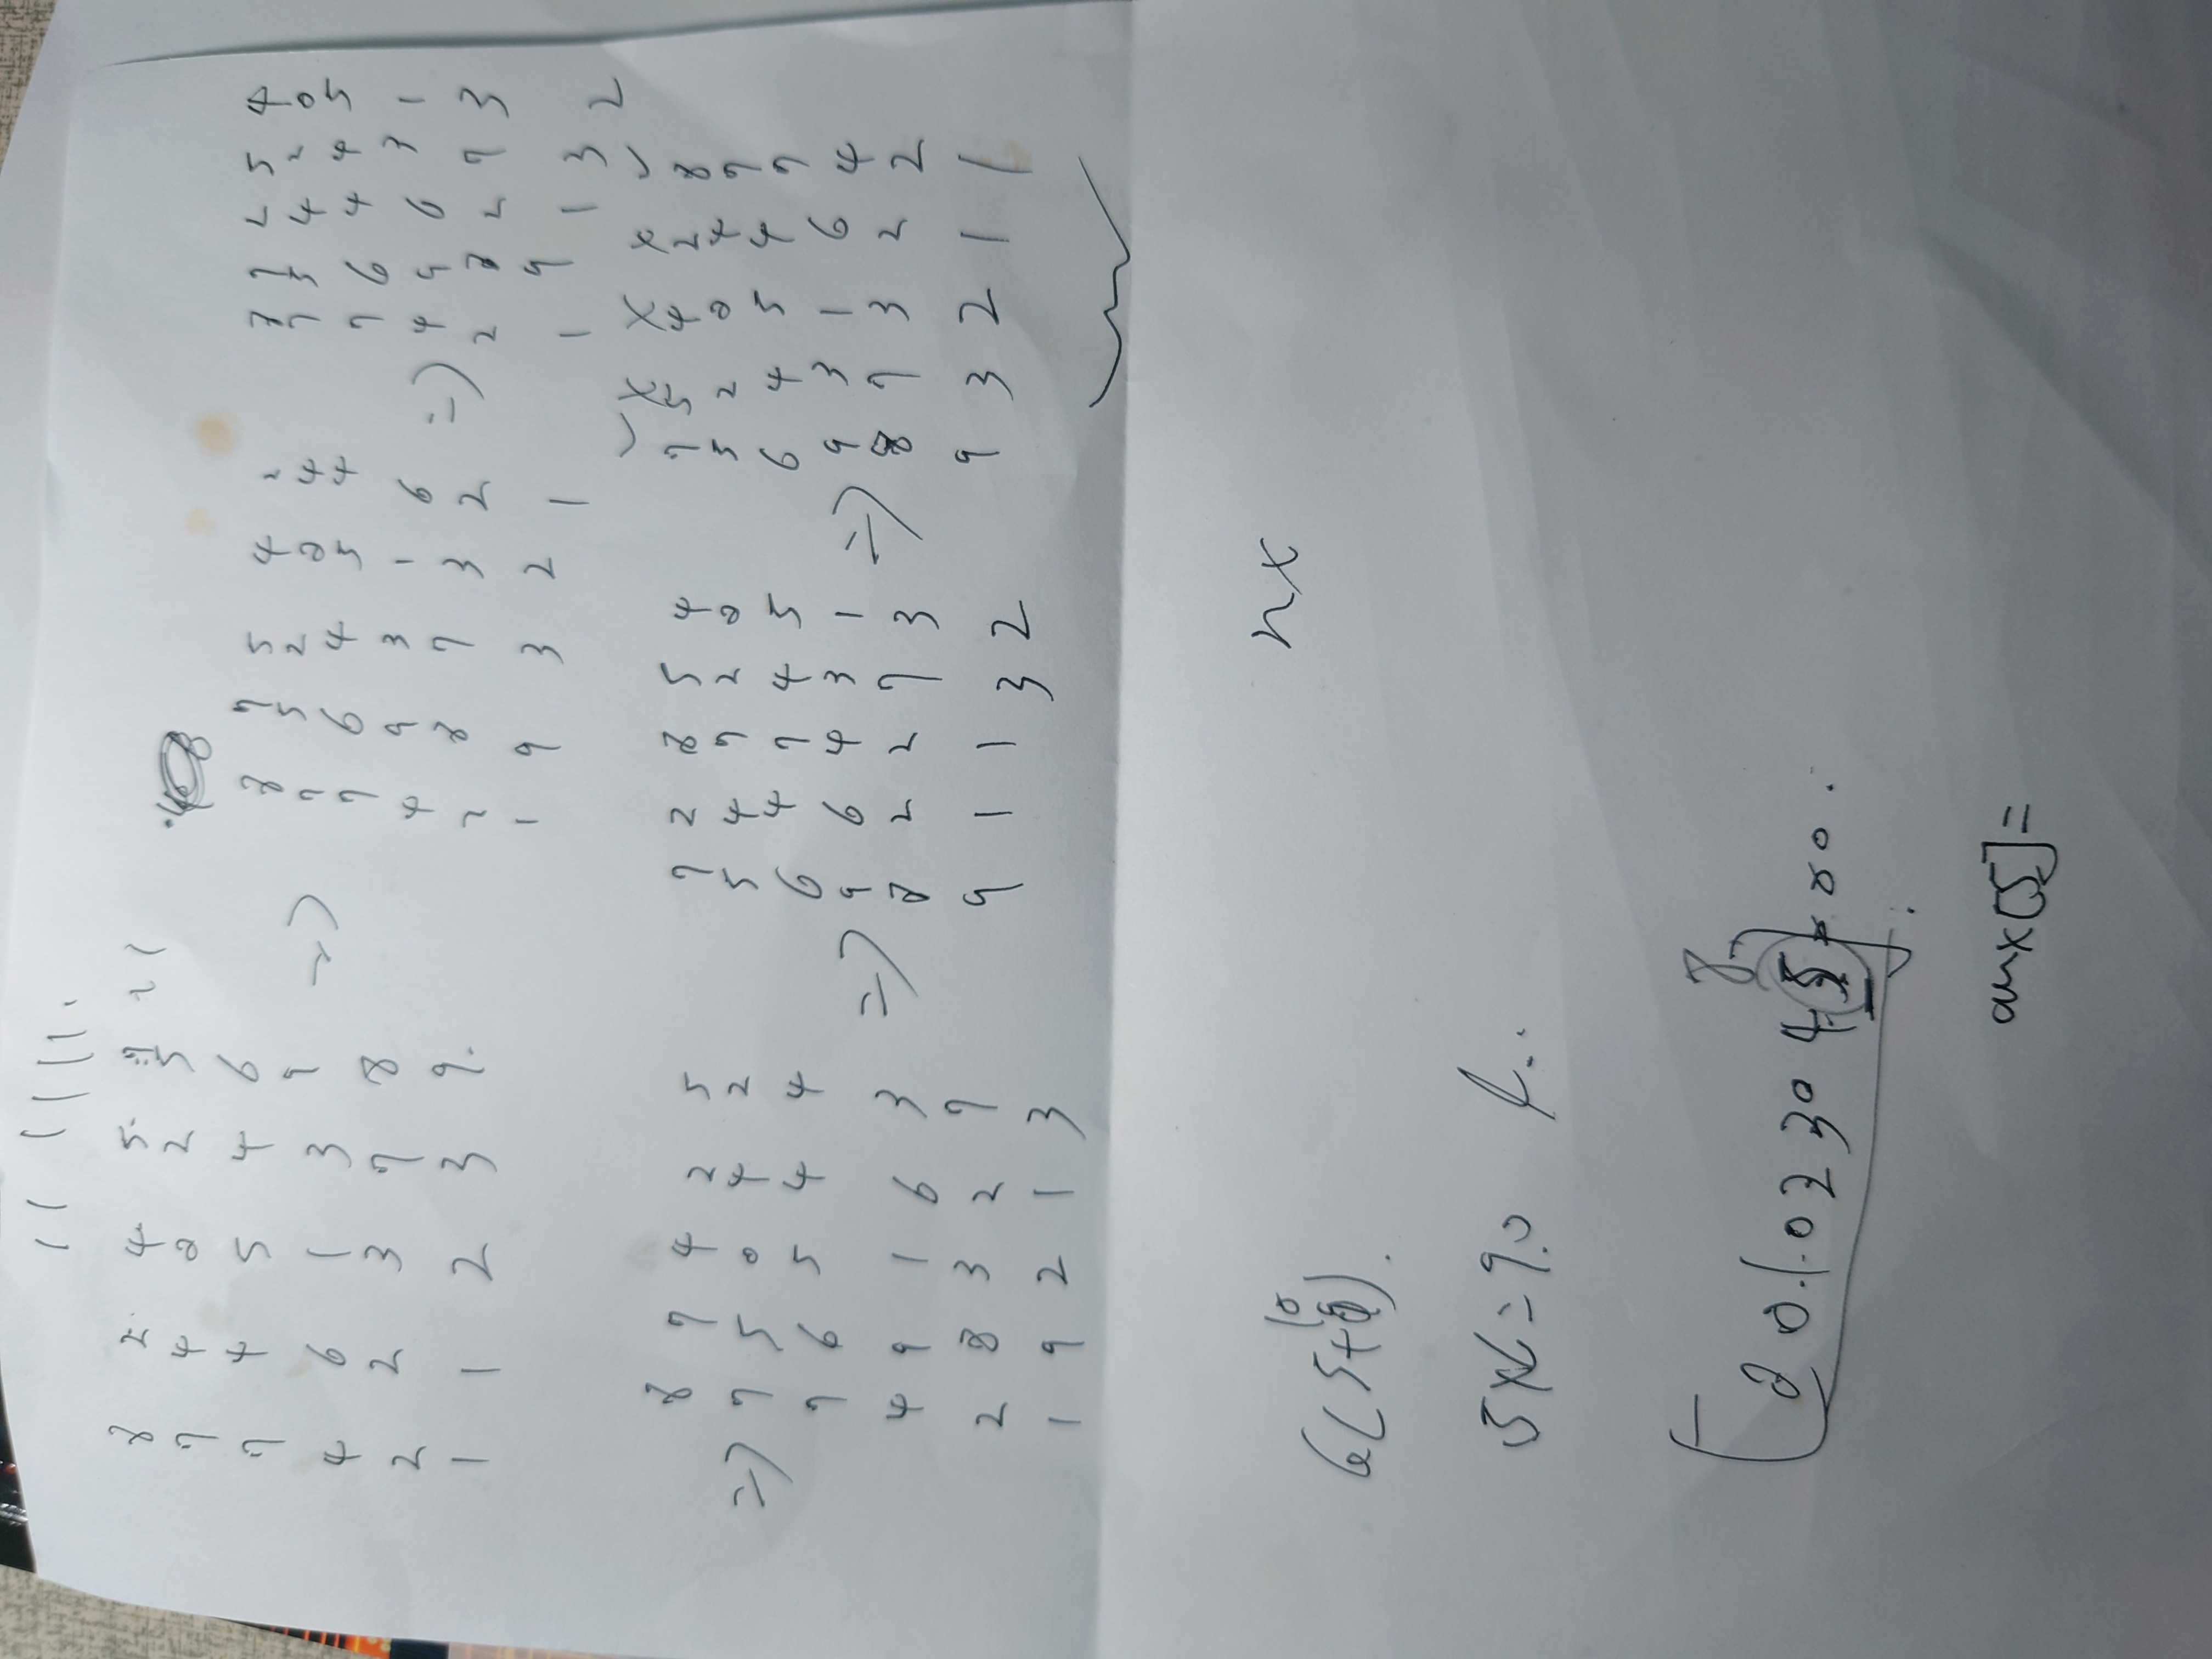 8 2 4 5 7
7 4 0 2 5
7 4 5 4 6
4 6 1 3 9
2 2 3 7 8
1 1 2 3 9.
=>
8 7 5 4 2
7 5 2 0 4
7 6 4 5 4
4 9 3 1 6
2 8 7 3 2
1 9 3 2 1
=>
8 7 2 5 4
7 5 4 2 0
7 6 4 4 5
4 9 6 3 1
2 8 2 7 3
1 9 1 3 2
=>
8 7 4 2 5
7 5 0 4 2
7 6 5 4 4
4 9 1 6 3
2 8 3 2 7
1 9 2 1 3
=>
7 2 8 5 4
5 4 7 2 0
6 4 7 4 5
9 6 4 3 1
8 2 2 7 3
9 1 1 3 2
=>
✓ × × × ✓
7 5 4 2 8
5 2 0 4 7
6 4 5 4 7
9 3 1 6 4
8 7 3 2 2
9 3 2 1 1
nx
10
6(5+
=90
8
aux[5]=